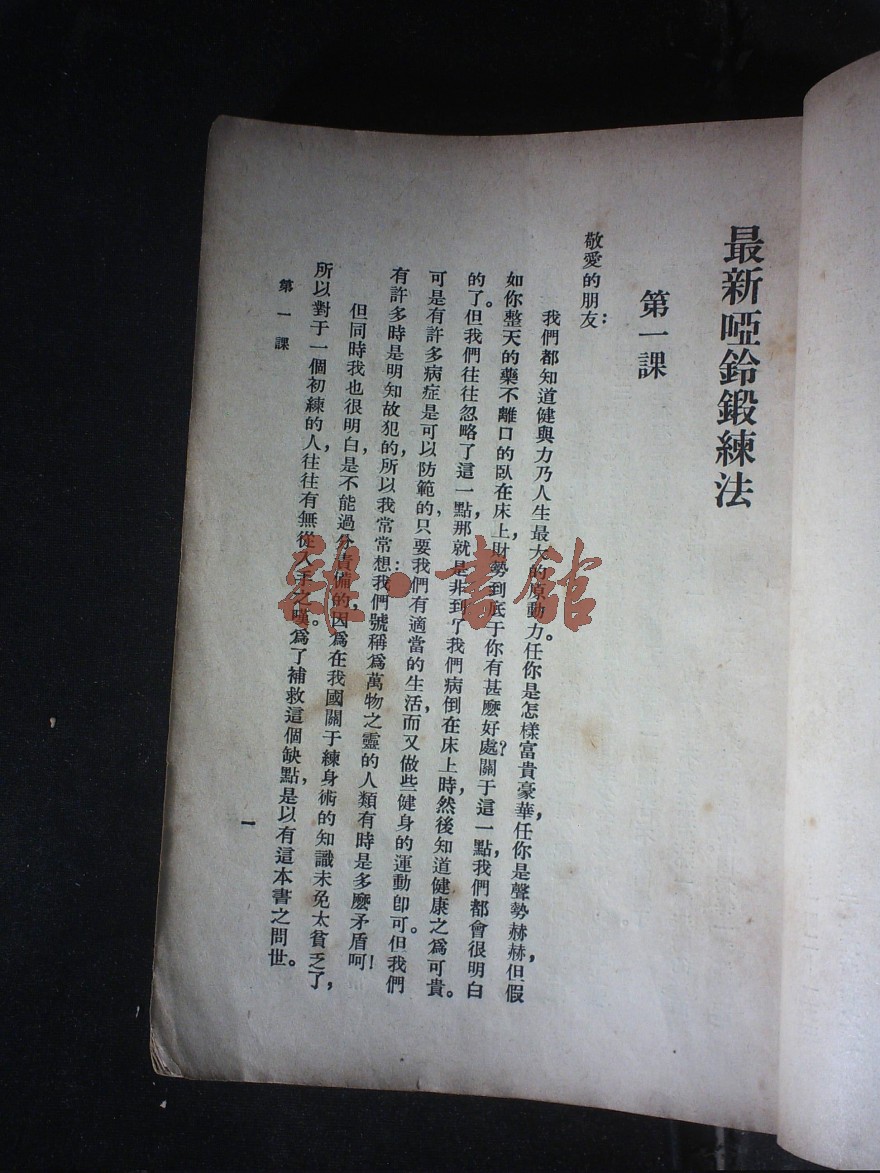 最新啞鈴鍛練法
第一課
敬愛的朋友：
我們都知道健與力乃人生最大的原動力。任你是怎樣富貴豪華，任你是聲勢赫赫，但假
如你整天的藥不離口的臥在床上，財勢到底于你有甚麼好處？關于這一點，我們都會很明白
的了。但我們往往忽略了這一點，那就是非到了我們病倒在床上時，然後知道健康之為可貴。
可是有許多病症是可以防範的，只要我們有適當的生活，而又做些健身的運動卽可。但我們
有許多時是明知故犯的，所以我常常想：我們號稱為萬物之靈的人類有時是多麼矛盾呵！
但同時，我也很明白是不能過分責備的，因為在我國關于練身術的知識未免太貧乏了，
所以對于一個初練的人，往往有無從入手之嘆。為了補救這個缺點，是以有這本書之問世。
第一課
一
雜·書館